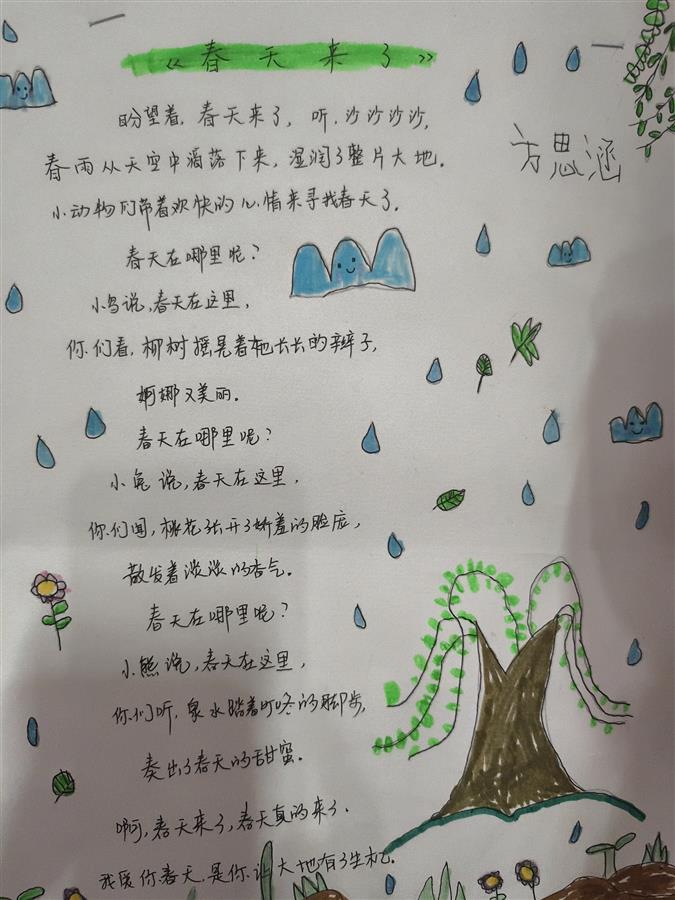 《春天来了》
盼望着,春天来了,听,沙沙沙沙,
方思涵
春雨从天空中洒落下来,湿润了整片大地。
小动物们带着欢快的心情来寻找春天了。
春天在哪里呢?
小鸟说,春天在这里,
你们看,柳树摇晃着她长长的辫子,
婀娜又美丽。
春天在哪里呢?
小兔说,春天在这里,
你们闻,桃花张开了娇羞的脸庞,
散发着淡淡的香气。
春天在哪里呢?
小熊说,春天在这里,
你们听,泉水踏着叮咚的脚步,
奏出了春天的甜蜜。
啊,春天来了,春天真的来了。
我爱你春天,是你让大地有了生机。